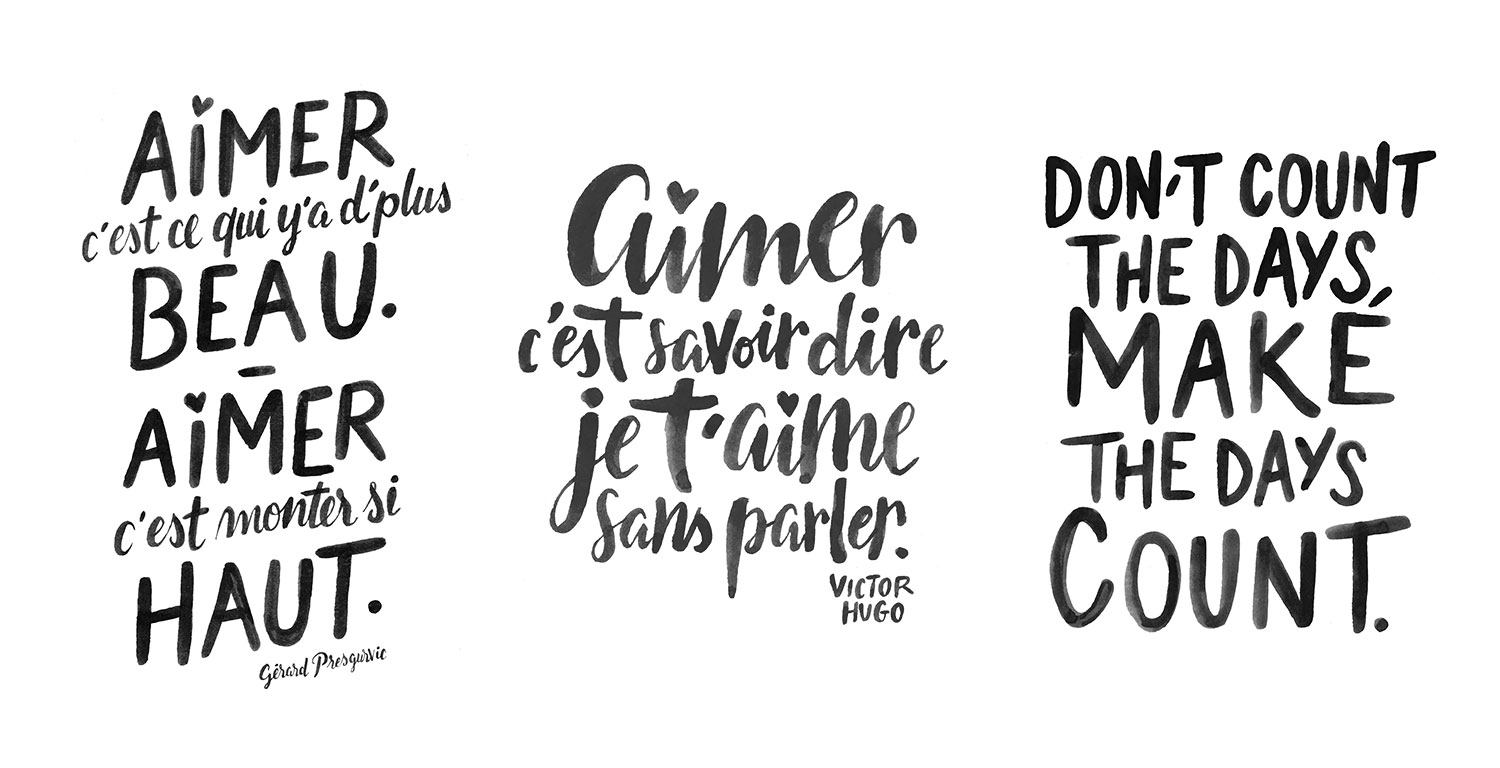 AiMER
c'est ce qui y'a d'plus
BEAU.
-
AiMER
c'est monter si
HAUT.
Gérard Presgurvic
aimer
c'est savoir dire
je t'aime
sans parler.
VICTOR
HUGO
DON'T COUNT
THE DAYS,
MAKE
THE DAYS
COUNT.